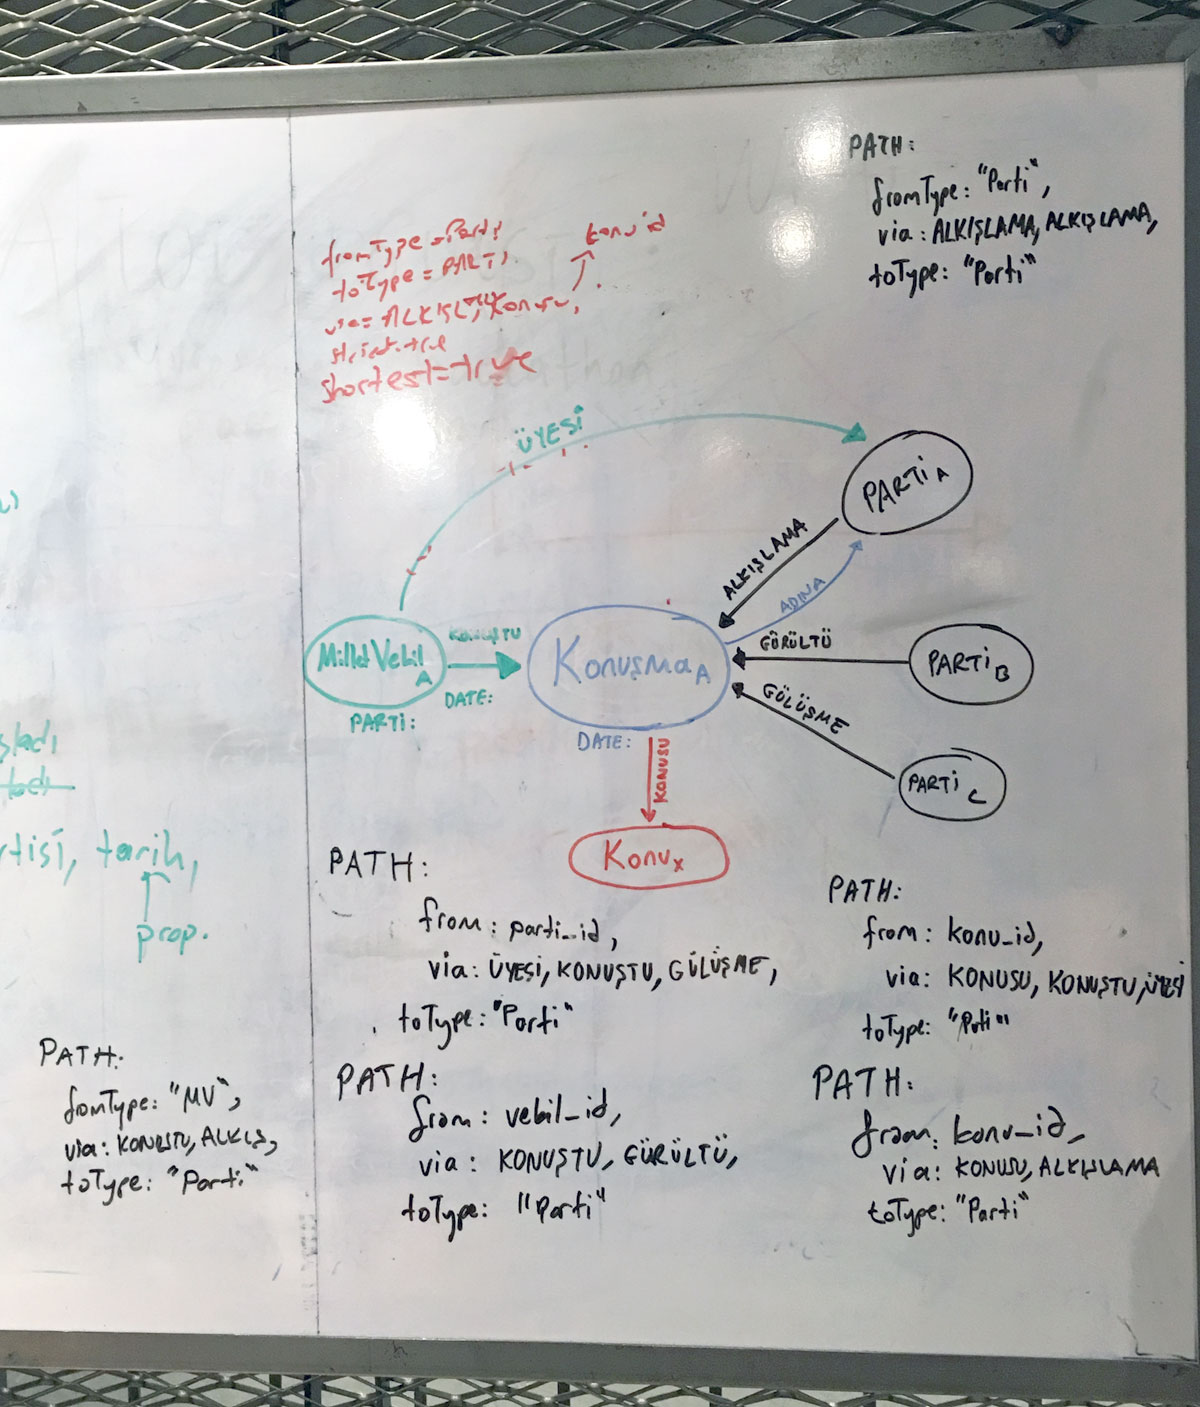 PATH:
fromType: "Parti",
via: ALKIŞLAMA, ALKIŞLAMA,
toType: "Parti"
konu id
fromType = Parti
toType = PARTİ
via = ALKIŞLA, Konusu,
strict=true
shortest=true
ÜYESİ
PARTİ A
ALKIŞLAMA
ADINA
MilletVekil A
KONUŞTU
DATE:
PARTİ:
Konuşma A
DATE:
GÜRÜLTÜ
PARTİ B
GÜLÜŞME
PARTİ C
KONUSU
Konu x
şladı
rtisi, tarih,
prop.
PATH:
from: parti_id,
via: ÜYESİ, KONUŞTU, GÜLÜŞME,
toType: "Parti"
PATH:
from: konu_id,
via: KONUSU, KONUŞTU, ÜYESİ
toType: "Parti"
PATH:
fromType: "MV",
via: KONUŞTU, ALKIŞ,
toType: "Parti"
PATH:
from: vekil_id,
via: KONUŞTU, GÜRÜLTÜ,
toType: "Parti"
PATH:
from: konu_id,
via: KONUSU, ALKIŞLAMA
toType: "Parti"